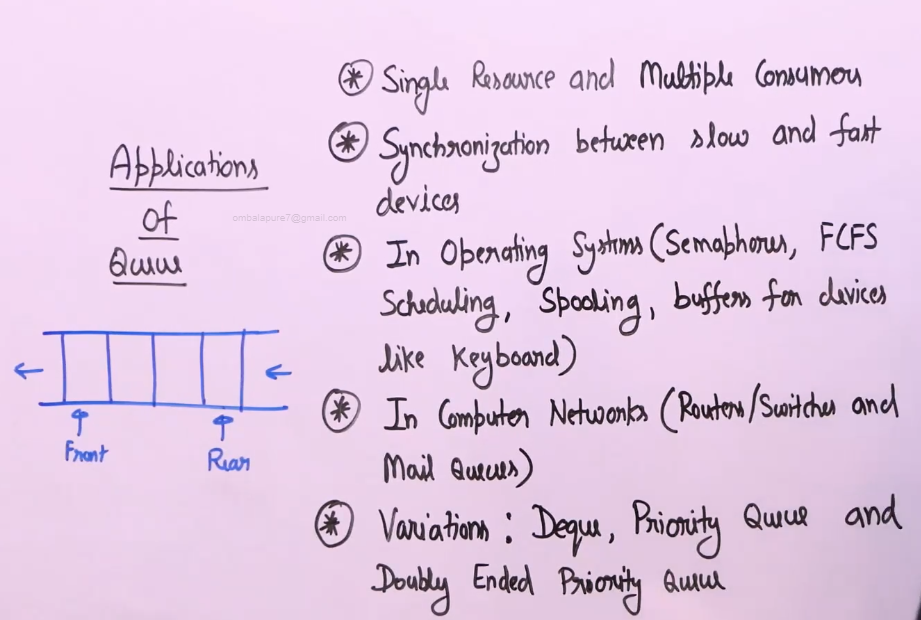 Applications
Of
Queue
ombalapure7@gmail.com
Front
Rear
Single Resource and Multiple Consumers
Synchronization between slow and fast
devices
In Operating Systems (Semaphores, FCFS
Scheduling, Spooling, buffers for devices
like Keyboard)
In Computer Networks (Routers/Switches and
Mail Queues)
Variations : Deque, Priority Queue and
Doubly Ended Priority Queue